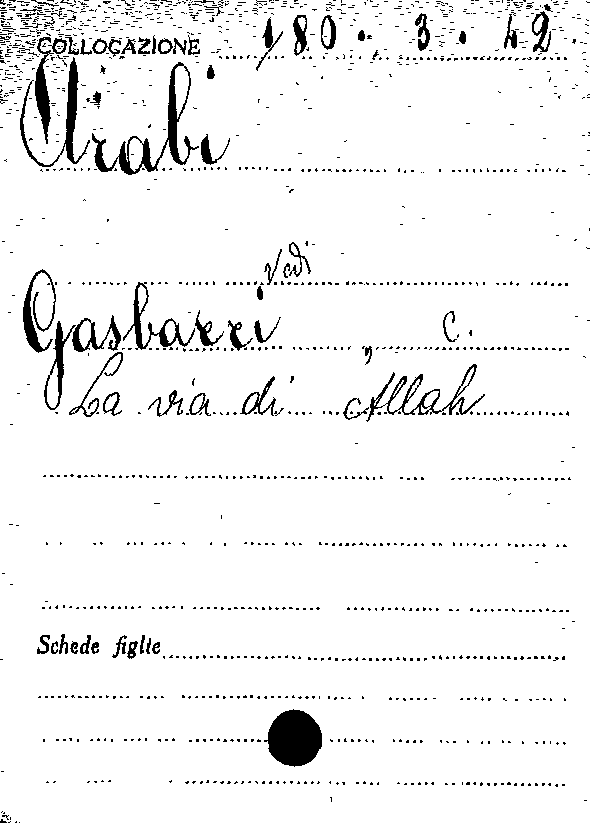 COLLOCAZIONE 180.3.42
Arabi
Vedi
Gasbarri, C.
La via di Allah
Schede figlie